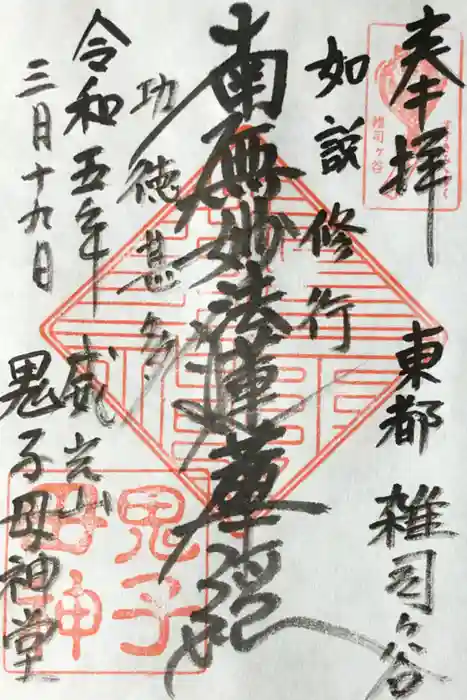 奉拝
東都 雑司ヶ谷
如説修行
南無妙法蓮華経
功徳甚多
令和五年
三月十九日
威光山
鬼子母神堂
雑司ヶ谷
鬼子
母神